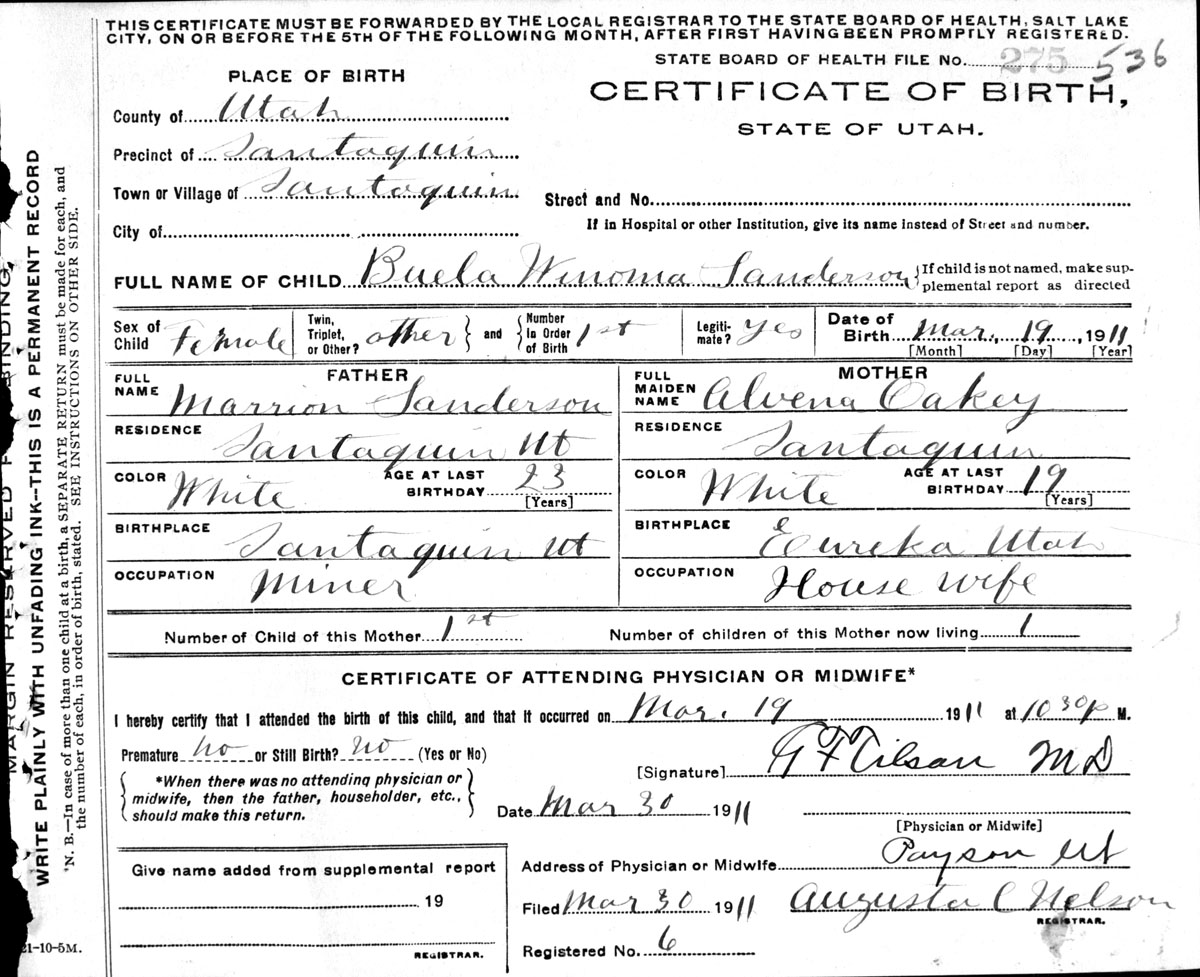 THIS CERTIFICATE MUST BE FORWARDED BY THE LOCAL REGISTRAR TO THE STATE BOARD OF HEALTH, SALT LAKE
CITY, ON OR BEFORE THE 5TH OF THE FOLLOWING MONTH, AFTER FIRST HAVING BEEN PROMPTLY REGISTERED.
STATE BOARD OF HEALTH FILE No. 275 536
PLACE OF BIRTH
CERTIFICATE OF BIRTH,
STATE OF UTAH.
County of Utah
Precinct of Santaquin
Town or Village of Santaquin
Street and No.
City of
If in Hospital or other Institution, give its name instead of Street and number.
FULL NAME OF CHILD Buela Winoma Sanderson
{If child is not named, make sup-
plemental report as directed
Sex of Child Female
Twin, Triplet, or Other? other } and { Number in Order of Birth 1st
Legiti-mate? Yes
Date of Birth Mar. 19, 1911
[Month] [Day] [Year]
FATHER
FULL NAME Marrion Sanderson
RESIDENCE Santaquin Ut
COLOR White AGE AT LAST BIRTHDAY 23
[Years]
BIRTHPLACE Santaquin Ut
OCCUPATION Miner
MOTHER
FULL MAIDEN NAME Alvena Oakey
RESIDENCE Santaquin
COLOR White AGE AT LAST BIRTHDAY 19
[Years]
BIRTHPLACE Eureka Utah
OCCUPATION House wife
Number of Child of this Mother 1st Number of children of this Mother now living 1
CERTIFICATE OF ATTENDING PHYSICIAN OR MIDWIFE*
I hereby certify that I attended the birth of this child, and that it occurred on Mar. 19 1911 at 10 30 p M.
Premature No or Still Birth? No (Yes or No)
*When there was no attending physician or
midwife, then the father, householder, etc.,
should make this return.
[Signature] G F Tilson M D
Date Mar 30 1911
[Physician or Midwife]
Address of Physician or Midwife Payson Ut
Filed Mar 30 1911 Augusta C Nelson
REGISTRAR.
Registered No. 6
Give name added from supplemental report
19
REGISTRAR.
21-10-5M.
MARGIN RESERVED FOR BINDING
WRITE PLAINLY WITH UNFADING INK--THIS IS A PERMANENT RECORD
N. B.—In case of more than one child at a birth, a SEPARATE RETURN must be made for each, and
the number of each, in order of birth, stated. SEE INSTRUCTION ON OTHER SIDE.